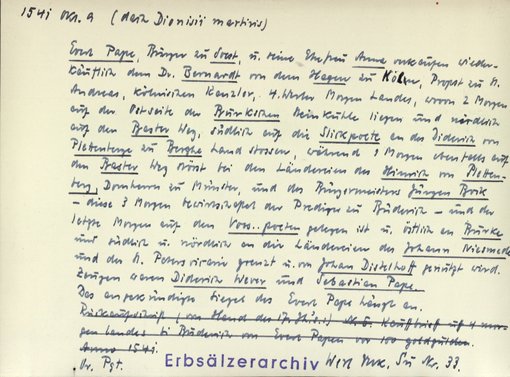 1541 Okt. 9 (dach Dionisii martiris)
Evert Pape, Bürger zu Soest, u. seine Ehefrau Anna verkaufen wieder-
käuflich dem Dr. Bernardt von dem Hagen zu Köln, Propst zu St.
Andreas, kölnischen Kanzler, 4 Morgen Landes, wovon 2 Morgen
auf der Ostseite der liegen und nördlich
auf den Baster Weg, südlich auf die Slickpoete an des Diderich von
Plettenberg zu Berghe Land stossen, während 1 Morgen ebenfalls auf
den Baster Weg stösst bei den Ländereien des Hinrich von Pletten-
berg, Domherrn zu Münster, und des Bürgermeisters Jürgen Brik
- diese 3 Morgen bewirtschaftet der Prediger zu Büderich - und der
letzte Morgen auf den gelegen ist u. östlich an
und südlich u. nördlich an die Ländereien des Johann
und des St. Peters vicarie grenzt u. von Johan Distelhoff genutzt wird.
Zeugen waren Diderich Wever und Sebastian Pape.
Das angekündigte Siegel des Evert Pape hängt an.
Rückaufschrift (von Hand des 17. Jh.s.) Kauffbrieff uff 4 mor-
gen landes tho Büderich von Evert Papen vor 100 goldgülden.
Anno 1541.
Or. Pgt. Erbsälzerarchiv Werl Urk. Nr. 33.